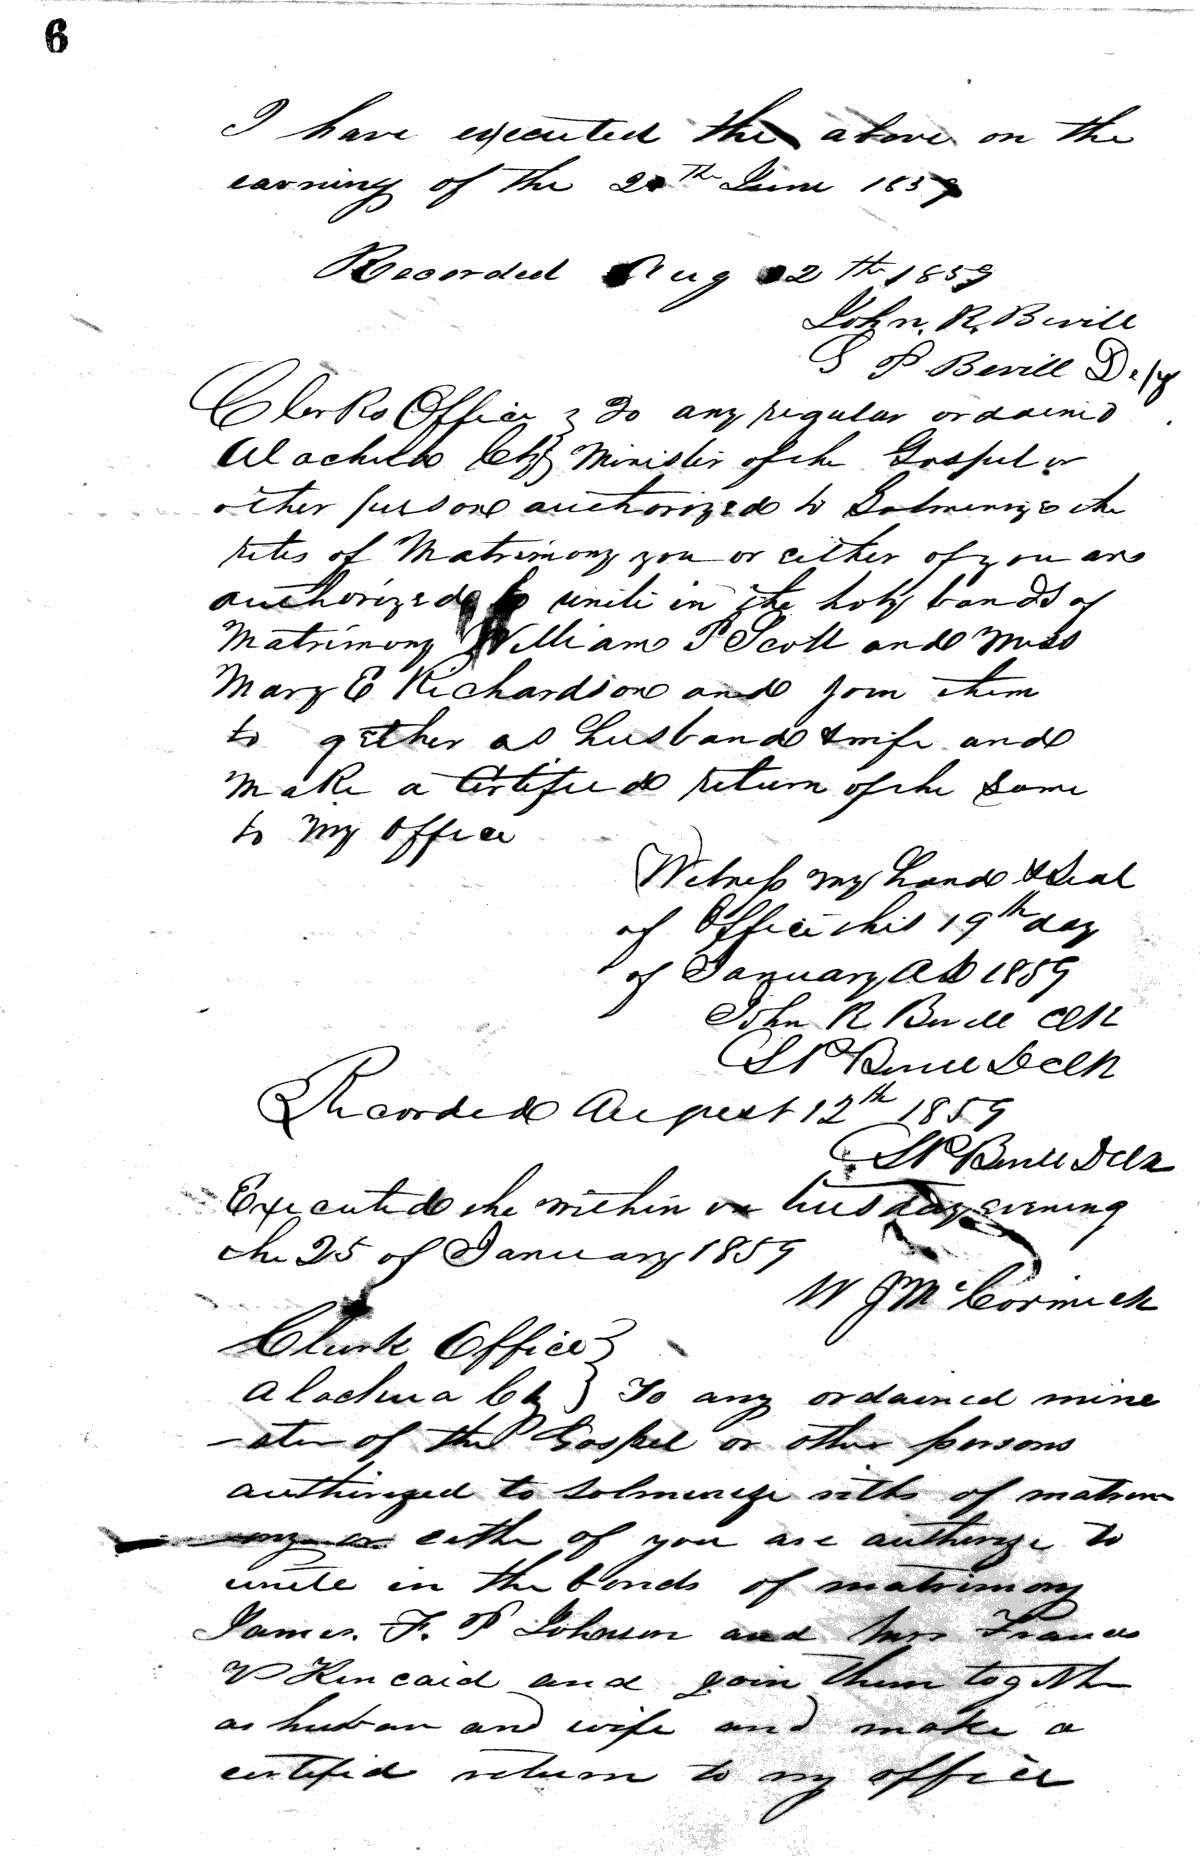 6
I have executed the above on the
earning of the 2 th June 1859
Recorded Aug 12th 1859
John. R. Bevill
S P Bevill Depy
Clerks Office } To any regular ordained
Alachua Cty } Minister of the Gospel or
other persone authorized to Solmenize the
rites of Matrimony you or either of you are
authorized to unite in the holy bands of
Matrimony William P Scott and Miss
Mary E Richardson and join them
to gether as husband & wife and
make a Certified return of the same
to my office
Witness my hand & Seal
of Office this 19th day
of January AD 1859
John R Bevill Clk
S P Bevill D Clk
Recorded August 12th 1859
S P Bevill D Clk
Executed the within on tuesday evening
the 25 of January 1859
W J McCormick
Clerk Office }
Alachua Cty } To any ordained mine
-ster of the Gospel or other persons
authorized to solmenize rites of matrim
ony or eithe of you are authorize to
unite in the bonds of matrimony
James. F. P Johnson and Frances
Kincaid and join them togethe
as husban and wife and make a
certifid return to my office